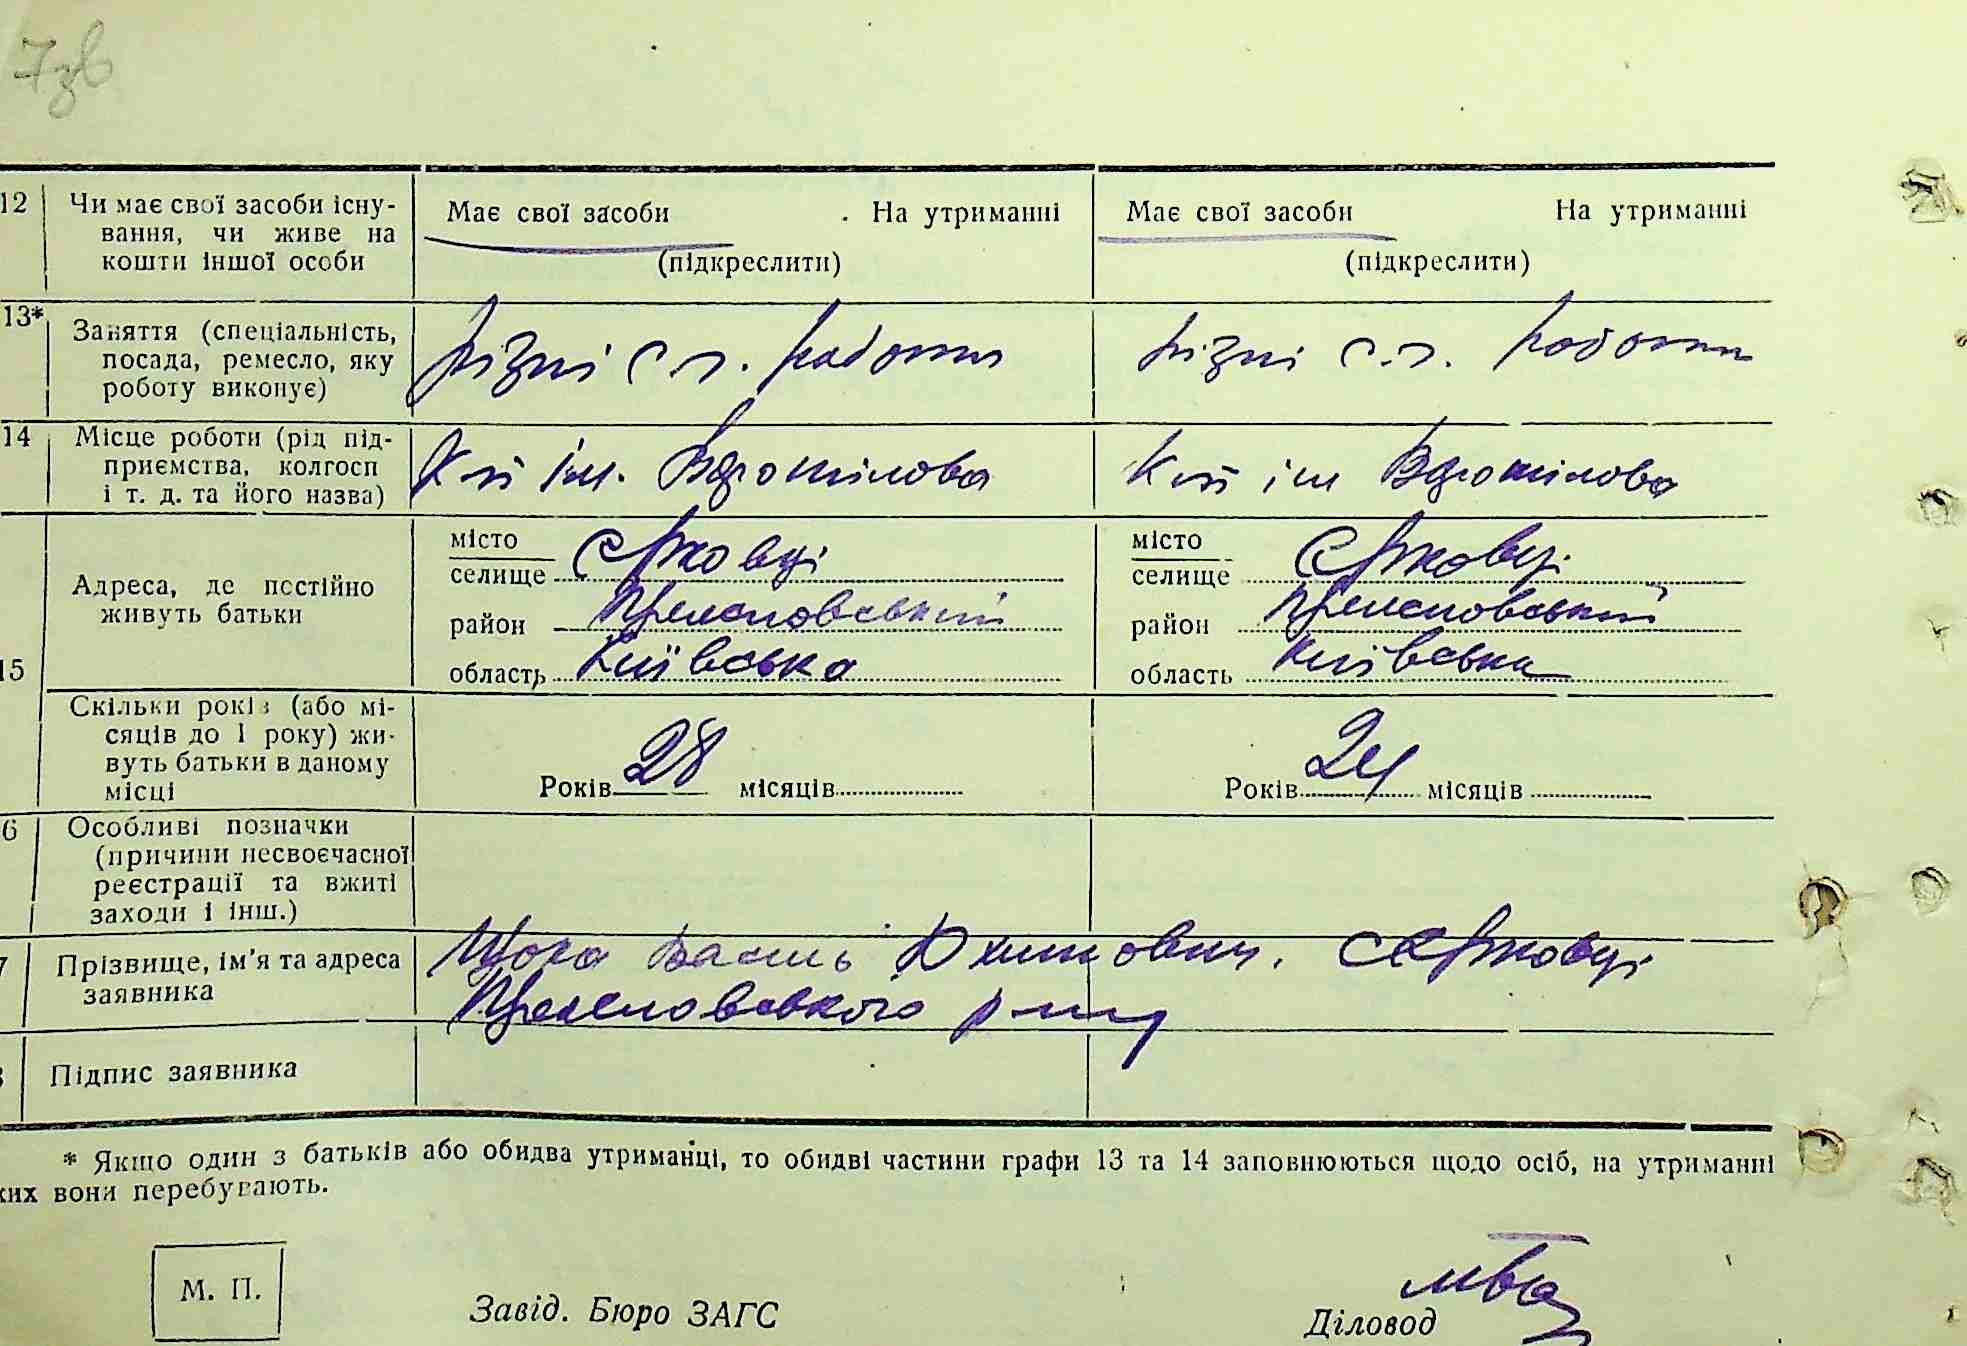 7зв
12 Чи має свої засоби існу-
вання, чи живе на
кошти іншої особи
Має свої засоби На утриманні
(підкреслити)
Має свої засоби На утриманні
(підкреслити)
13* Заняття (спеціальність,
посада, ремесло, яку
роботу виконує)
різні с. г. работи
різні с. г. работи
14 Місце роботи (рід під-
приємства, колгосп
і т. д. та його назва)
К-п ім. Ворошилова
К-п ім Ворошилова
15 Адреса, де постійно
живуть батьки
місто
селище
район
область Київська
місто
селище
район
область Київська
Скільки років (або мі-
сяців до 1 року) жи-
вуть батьки в даному
місці
Років 28 місяців
Років 24 місяців
6 Особливі позначки
(причини несвоєчасної
реєстрації та вжиті
заходи і інш.)
7 Прізвище, ім'я та адреса
заявника
Василь
Підпис заявника
* Якщо один з батьків або обидва утриманці, то обидві частини графи 13 та 14 заповнюються щодо осіб, на утриманні
ких вони перебувають.
М. П.
Завід. Бюро ЗАГС
Діловод